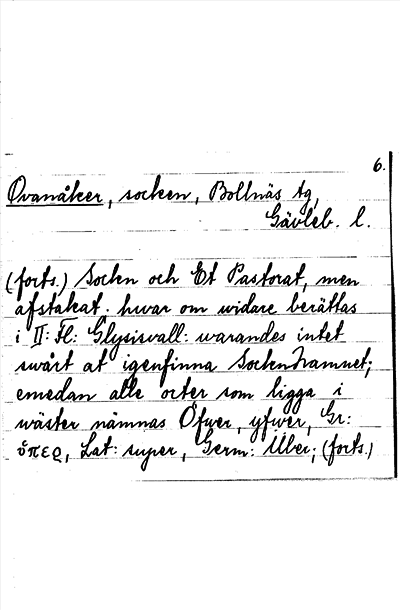 6.
Ovanåker, socken, Bollnäs tg,
Gävleb. l.
(forts.) Socken och Et Pastorat, men
afstakat. hwar om widare berättas
i II: Fl: Glysisvall: warandes intet
swårt at igenfinna Sockennamnet;
emedan alle orter som ligga i
wäster nämnas Öfwer, yfwer, Gr:
ὕπερ, Lat: super, Germ: Über; (forts.)